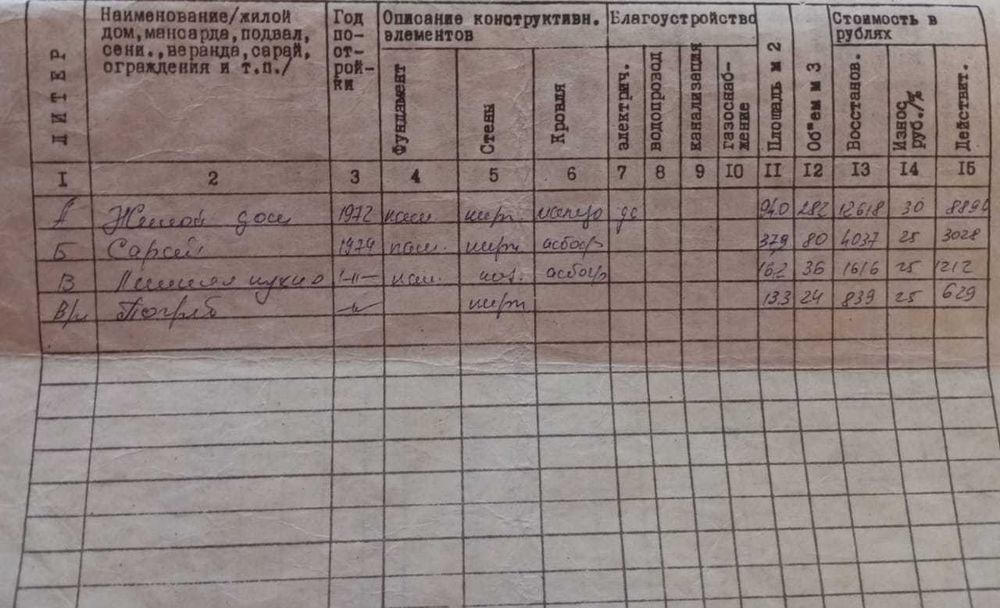 ЛИТЕР
Наименование/жилой
дом, мансарда, подвал,
сени., веранда, сарай,
ограждения и т.п./
Год
по-
от-
рой-
ки
Описание конструктивн.
элементов
Фундамент
Стены
Кровля
Благоустройство
электрич.
водопровод
канализация
газоснаб-
жение
Площадь м 2
Об"ем м 3
Стоимость в
рублях
Восстанов.
Износ
руб./%
Действит.
I 2 3 4 5 6 7 8 9 IO II I2 I3 I4 I5
А Жилой дом 1972 кам кирп да 94,0 282 12618 30
Б Сарай 1974 кам. кирп асбоф 37,9 80 4037 25 3028
В Летняя кухня -"- кам. асбоф 16,2 36 1616 25 1212
Погреб кирп 13,3 24 839 25 629